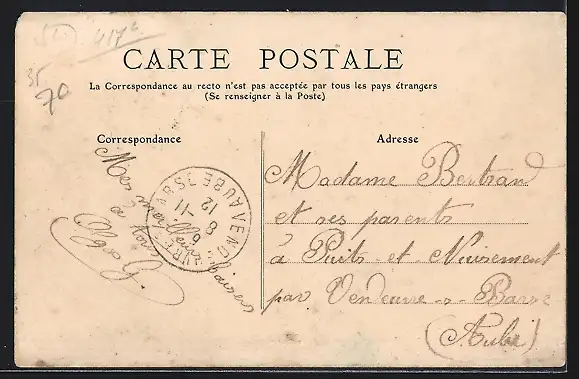 417c
35
70
CARTE POSTALE
La Correspondance au recto n'est pas acceptée par tous les pays étrangers
(Se renseigner à la Poste)
Correspondance
Mes meilleurs baisers
à tous
Olga G.
VENDEUVRE-S-BARSE
AUBE
12
8
11
Adresse
Madame Bertrand
et ses parents
à Puits et Nuisement
par Vendeuvre-s-Barse
(Aube)